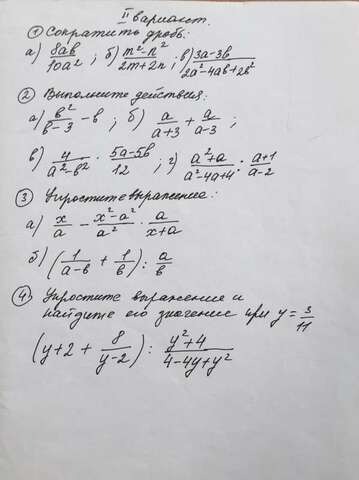 II вариант.
① Сократить дробь:
а) 8ав/10а² ; б) m²-n²/2m+2n ; в) 3а-3в/2а²-4ав+2в²
② Выполните действия:
а) в²/в-3 - в ; б) а/а+3 + а/а-3 ;
в) 4/а²-в² · 5а-5в/12 ; г) а²+а/а²-4а+4 : а+1/а-2
③ Упростите выражение:
а) x/a - x²-a²/a² · a/x+a
б) (1/а-в + 1/в) : а/в
④ Упростите выражение и
найдите его значение при y = 3/11
(y+2 + 8/y-2) : y²+4/4-4y+y²